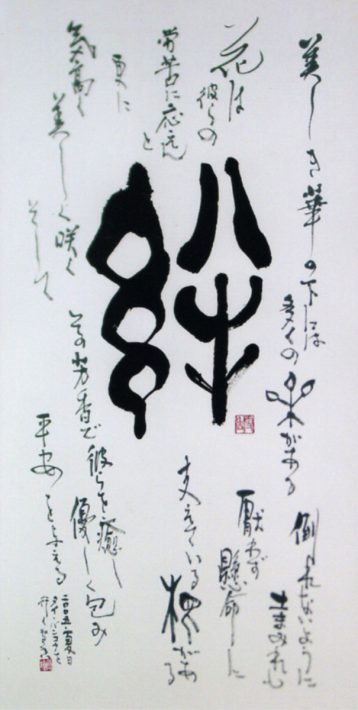 美しき華の下には
多くの
がある
倒れないように
土まみれも
厭わず
懸命に
支えている
根がある
絆
花は
彼らの
労苦に応えんと
更に
気高く
美しく咲く
そして
その芳香で
彼らを癒し
優しく包み
平安を与える
タイ・バンコクにて